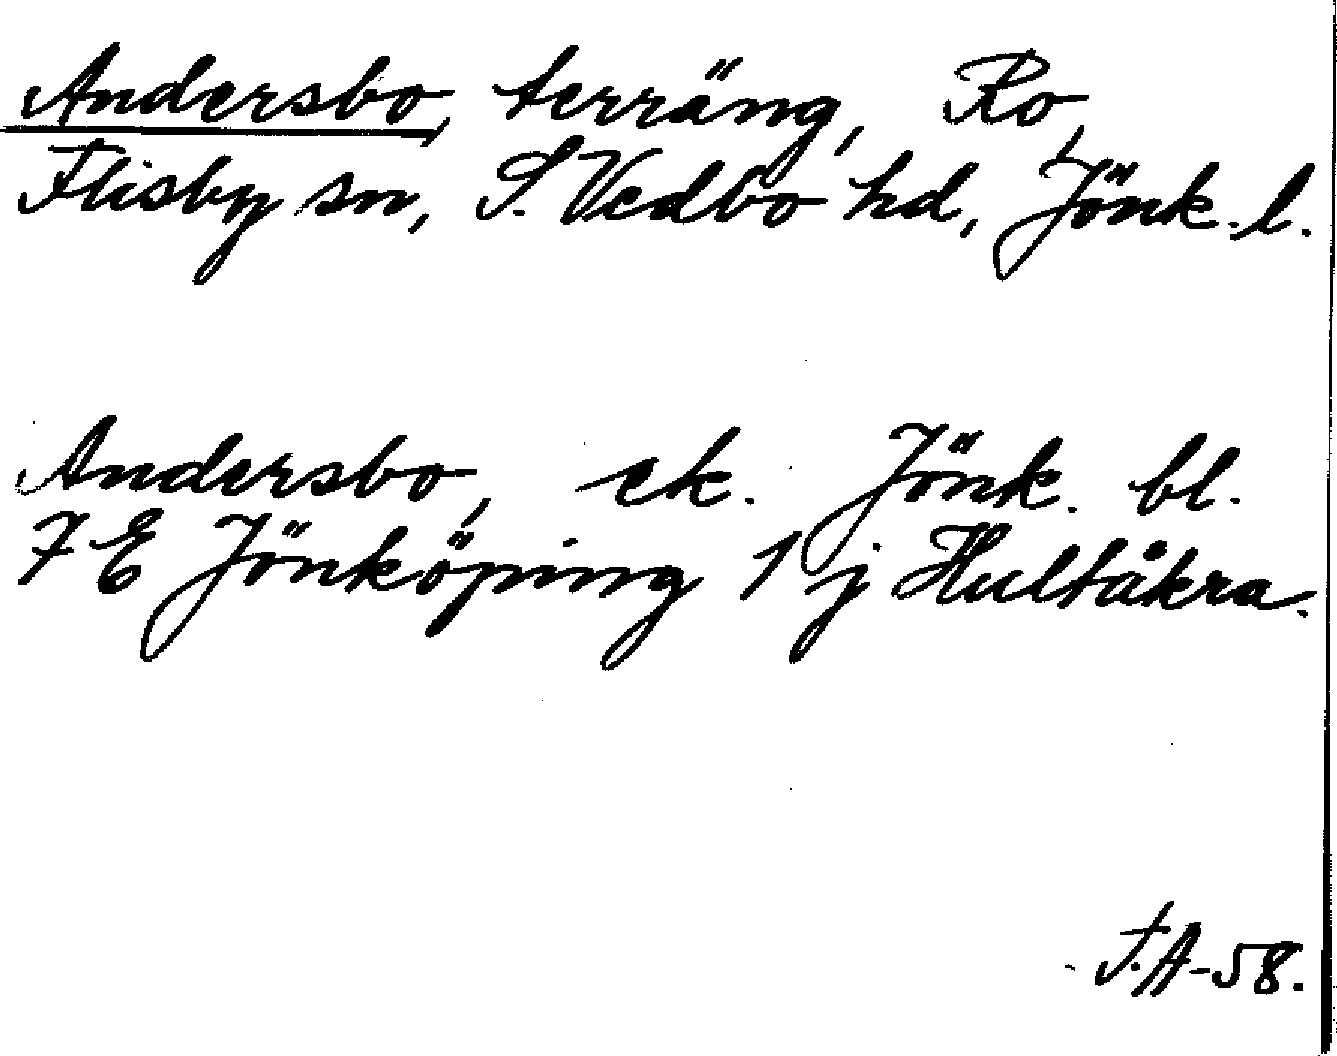 Andersbo, terräng, Ro,
Flisby sn, S. Vedbo hd, Jönk. l.
Andersbo, ek. Jönk. bl.
7 E Jönköping 1 j Hultåkra.
F.A-58.